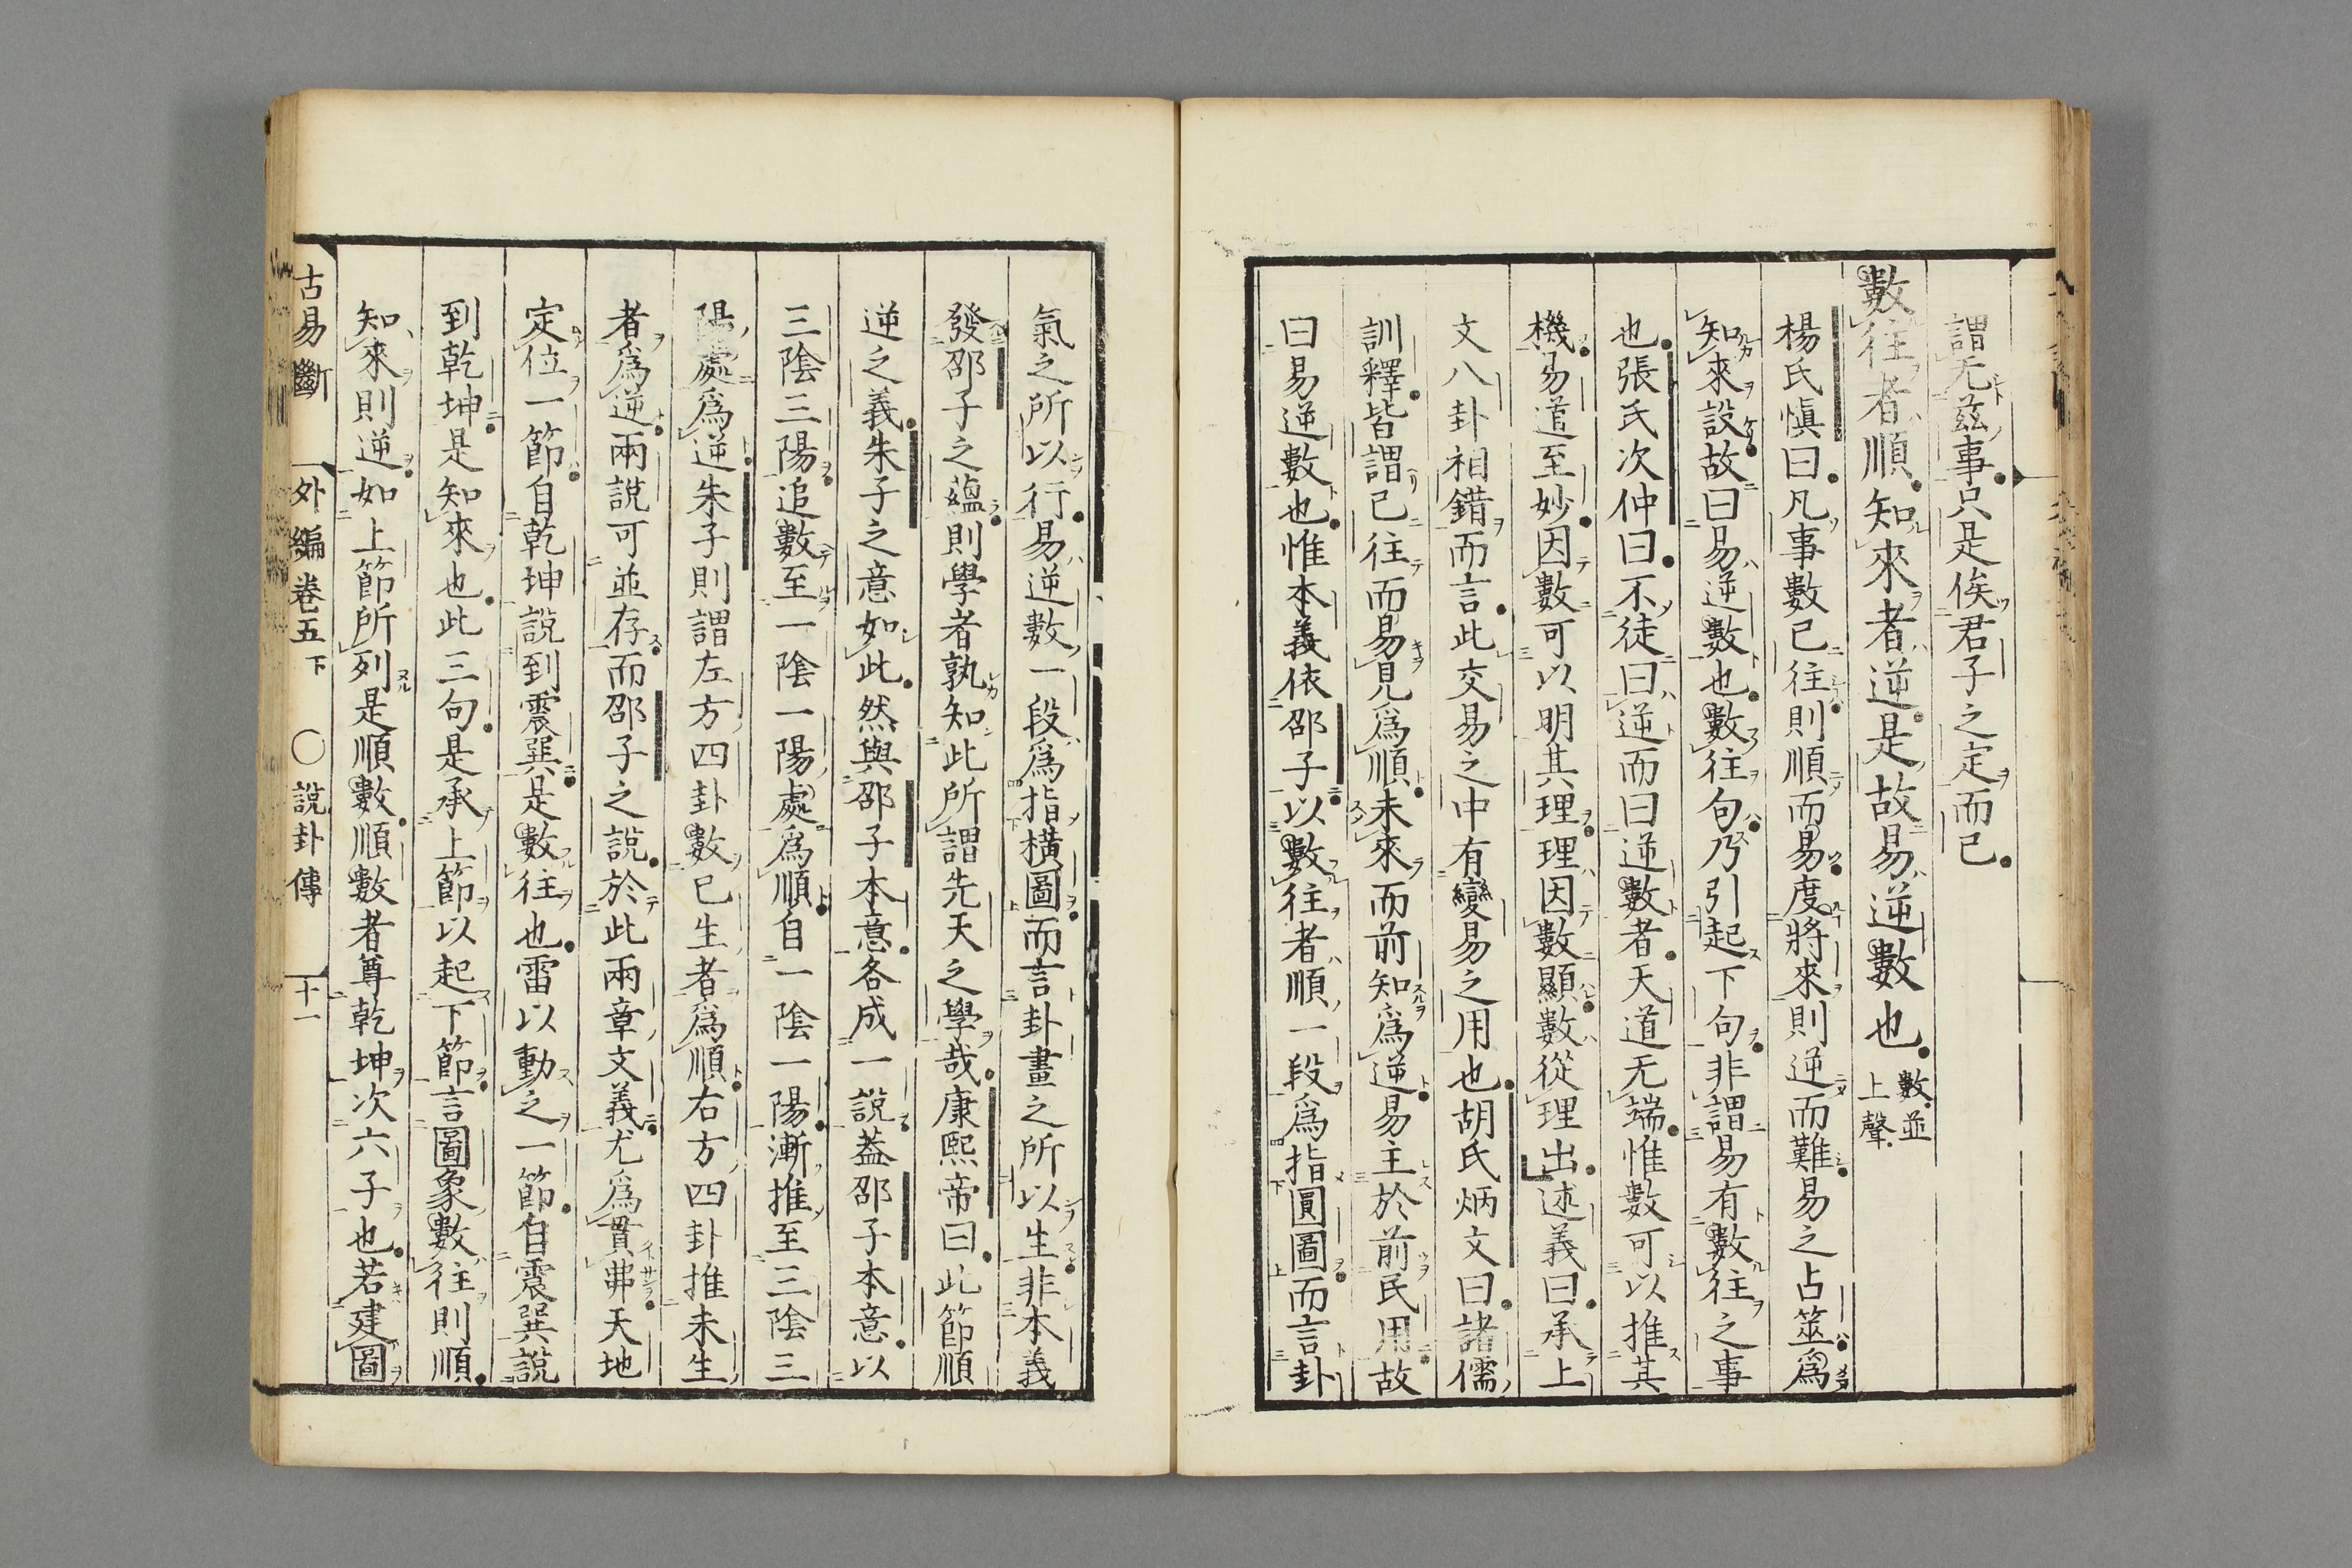 謂无茲事只是俟君子之定而已
數往者順知來者逆是故易逆數也 數並上聲
楊氏慎曰凡事數已往則順而易度將來則逆而難易之占筮爲
知來設故曰易逆數也數往句乃引起下句非謂易有數往之事
也張氏次仲曰不徒曰逆而曰逆數者天道无端惟數可以推其
機易道至妙因數可以明其理理因數顯數從理出述義曰承上
文八卦相錯而言此交易之中有變易之用也胡氏炳文曰諸儒
訓釋皆謂已往而易見爲順未來而前知爲逆易主於前民用故
曰易逆數也惟本義依邵子以數往者順一段爲指圓圖而言卦
氣之所以行易逆數一段爲指橫圖而言卦畫之所以生非本義
發邵子之蘊則學者孰知此所謂先天之學哉康熙帝曰此節順
逆之義朱子之意如此然與邵子本意各成一說蓋邵子本意以
三陰三陽追數至一陰一陽處爲順自一陰一陽漸推至三陰三
陽處爲逆朱子則謂左方四卦數已生者爲順右方四卦推未生
者爲逆兩說可並存而邵子之說於此兩章文義尤爲貫弗天地
定位一節自乾坤說到震巽是數往也雷以動之一節自震巽說
到乾坤是知來也此三句是承上節以起下節言圖象數往則順
知來則逆如上節所列是順數順數者尊乾坤次六子也若建圖
古易斷 外編卷五下 ○說卦傳 十一